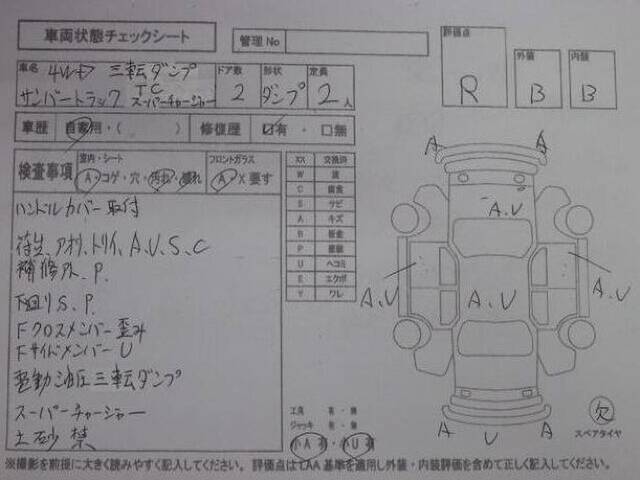 車両状態チェックシート
管理No
評価点
R
外装
B
内装
B
車名 4WD 三転ダンプ
サンバートラック TC スーパーチャージャー
ドア数
2
形状
ダンプ
定員
2人
車歴 自家用・( ) 修復歴 ☑有・□無
検査事項
室内・シート
A・コゲ・穴・汚れ・破れ
フロントガラス
A・X要す
ハンドルカバー取付
荷台、アオリ、トリイ、A、U、S、C
補修外、P.
下回りS、P.
Fクロスメンバー歪み
FサイドメンバーU
電動油圧三転ダンプ
スーパーチャージャー
土砂禁
XX 交換済
W 波
C 腐食
S サビ
A キズ
R 板金
P 塗装
U ヘコミ
E エクボ
Y ワレ
工具 有・無
ジャッキ 有・無
小A有・小U有
A
A
A.U
A.U
A.U
A.U
A
U
A
欠
スペアタイヤ
※撮影を前提に大きく読みやすく記入してください。 評価点はTAA基準を適用し外装・内装評価を含めて正しく記入してください。